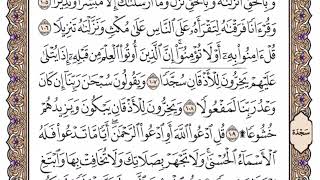 وَبِٱلْحَقِّ أَنزَلْنَٰهُ وَبِٱلْحَقِّ نَزَلَ وَمَآ أَرْسَلْنَٰكَ إِلَّا مُبَشِّرًا وَنَذِيرًا ١٠٥
وَقُرْءَانًا فَرَقْنَٰهُ لِتَقْرَأَهُۥ عَلَى ٱلنَّاسِ عَلَىٰ مُكْثٍ وَنَزَّلْنَٰهُ تَنزِيلًا ١٠٦
قُلْ ءَامِنُوا۟ بِهِۦٓ أَوْ لَا تُؤْمِنُوٓا۟ إِنَّ ٱلَّذِينَ أُوتُوا۟ ٱلْعِلْمَ مِن قَبْلِهِۦٓ إِذَا يُتْلَىٰ
عَلَيْهِمْ يَخِرُّونَ لِلْأَذْقَانِ سُجَّدًا ١٠٧ وَيَقُولُونَ سُبْحَٰنَ رَبِّنَآ إِن كَانَ
وَعْدُ رَبِّنَا لَمَفْعُولًا ١٠٨ وَيَخِرُّونَ لِلْأَذْقَانِ يَبْكُونَ وَيَزِيدُهُمْ
خُشُوعًا ١٠٩ قُلِ ٱدْعُوا۟ ٱللَّهَ أَوِ ٱدْعُوا۟ ٱلرَّحْمَٰنَ أَيًّا مَّا تَدْعُوا۟ فَلَهُ
سَجْدَة
ٱلْأَسْمَآءُ ٱلْحُسْنَىٰ وَلَا تَجْهَرْ بِصَلَاتِكَ وَلَا تُخَافِتْ بِهَا وَٱبْتَغِ